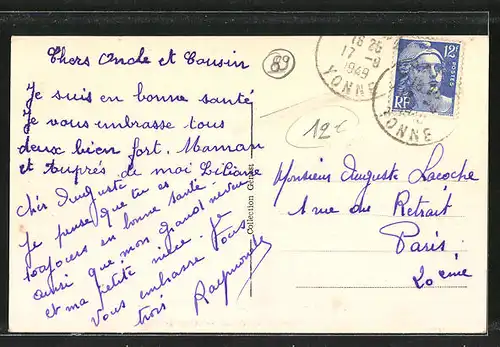 Chers Oncle et Cousin
Je suis en bonne santé
Je vous embrasse tous
deux bien fort. Maman
et Auprés de moi Liliane
Chér Auguste
Je pense que tu es
toujours en bonne santé
ainsi que mon grand neveu
et ma petite niece. Je
vous embrasse tous
trois Raymonde
89
12€
16 25
17 -8
1949
YONNE
12F
POSTES
RF
YONNE
Collection
Monsieur Auguste Lacoche
1 rue du Retrait
Paris
20 ème